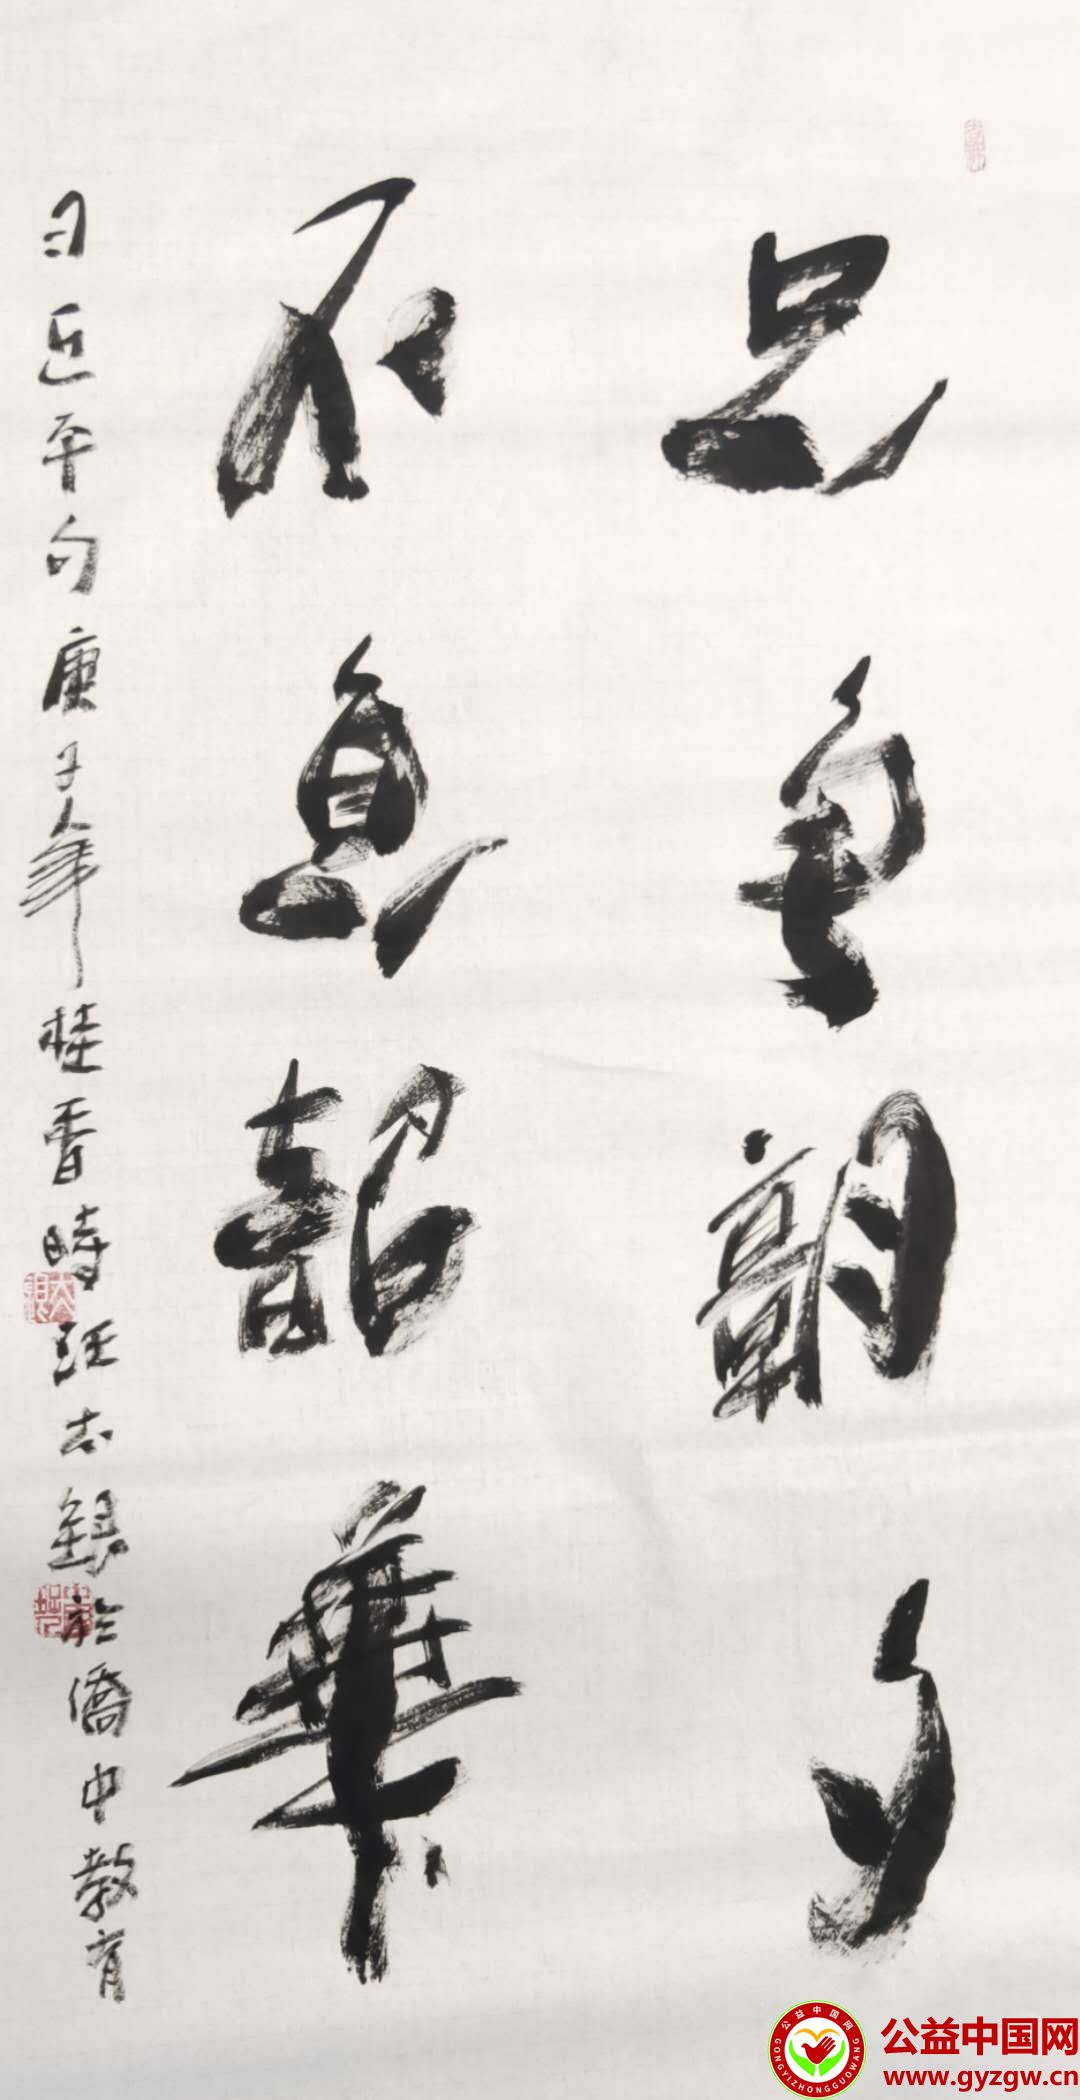 只爭朝夕
不負韶華
习近平句庚子年桂香時汪志銀於僑中教育
公益中国网
GONGYIZHONGGUOWANG
公益中国网
www.gyzgw.cn